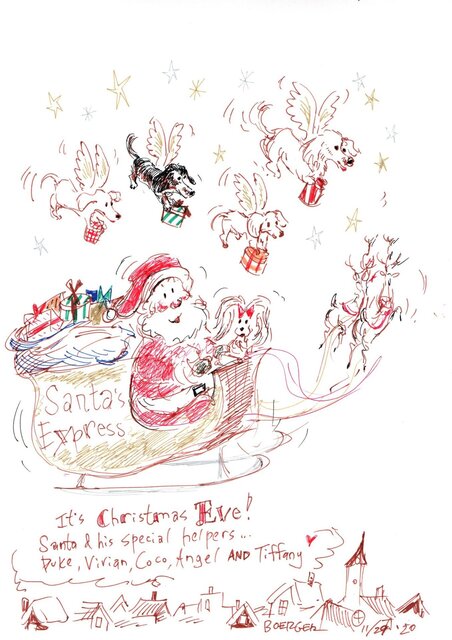 Santa's
Express
It's Christmas Eve!
Santa & his special helpers...
Duke, Vivian, Coco, Angel AND Tiffany
BOERGER